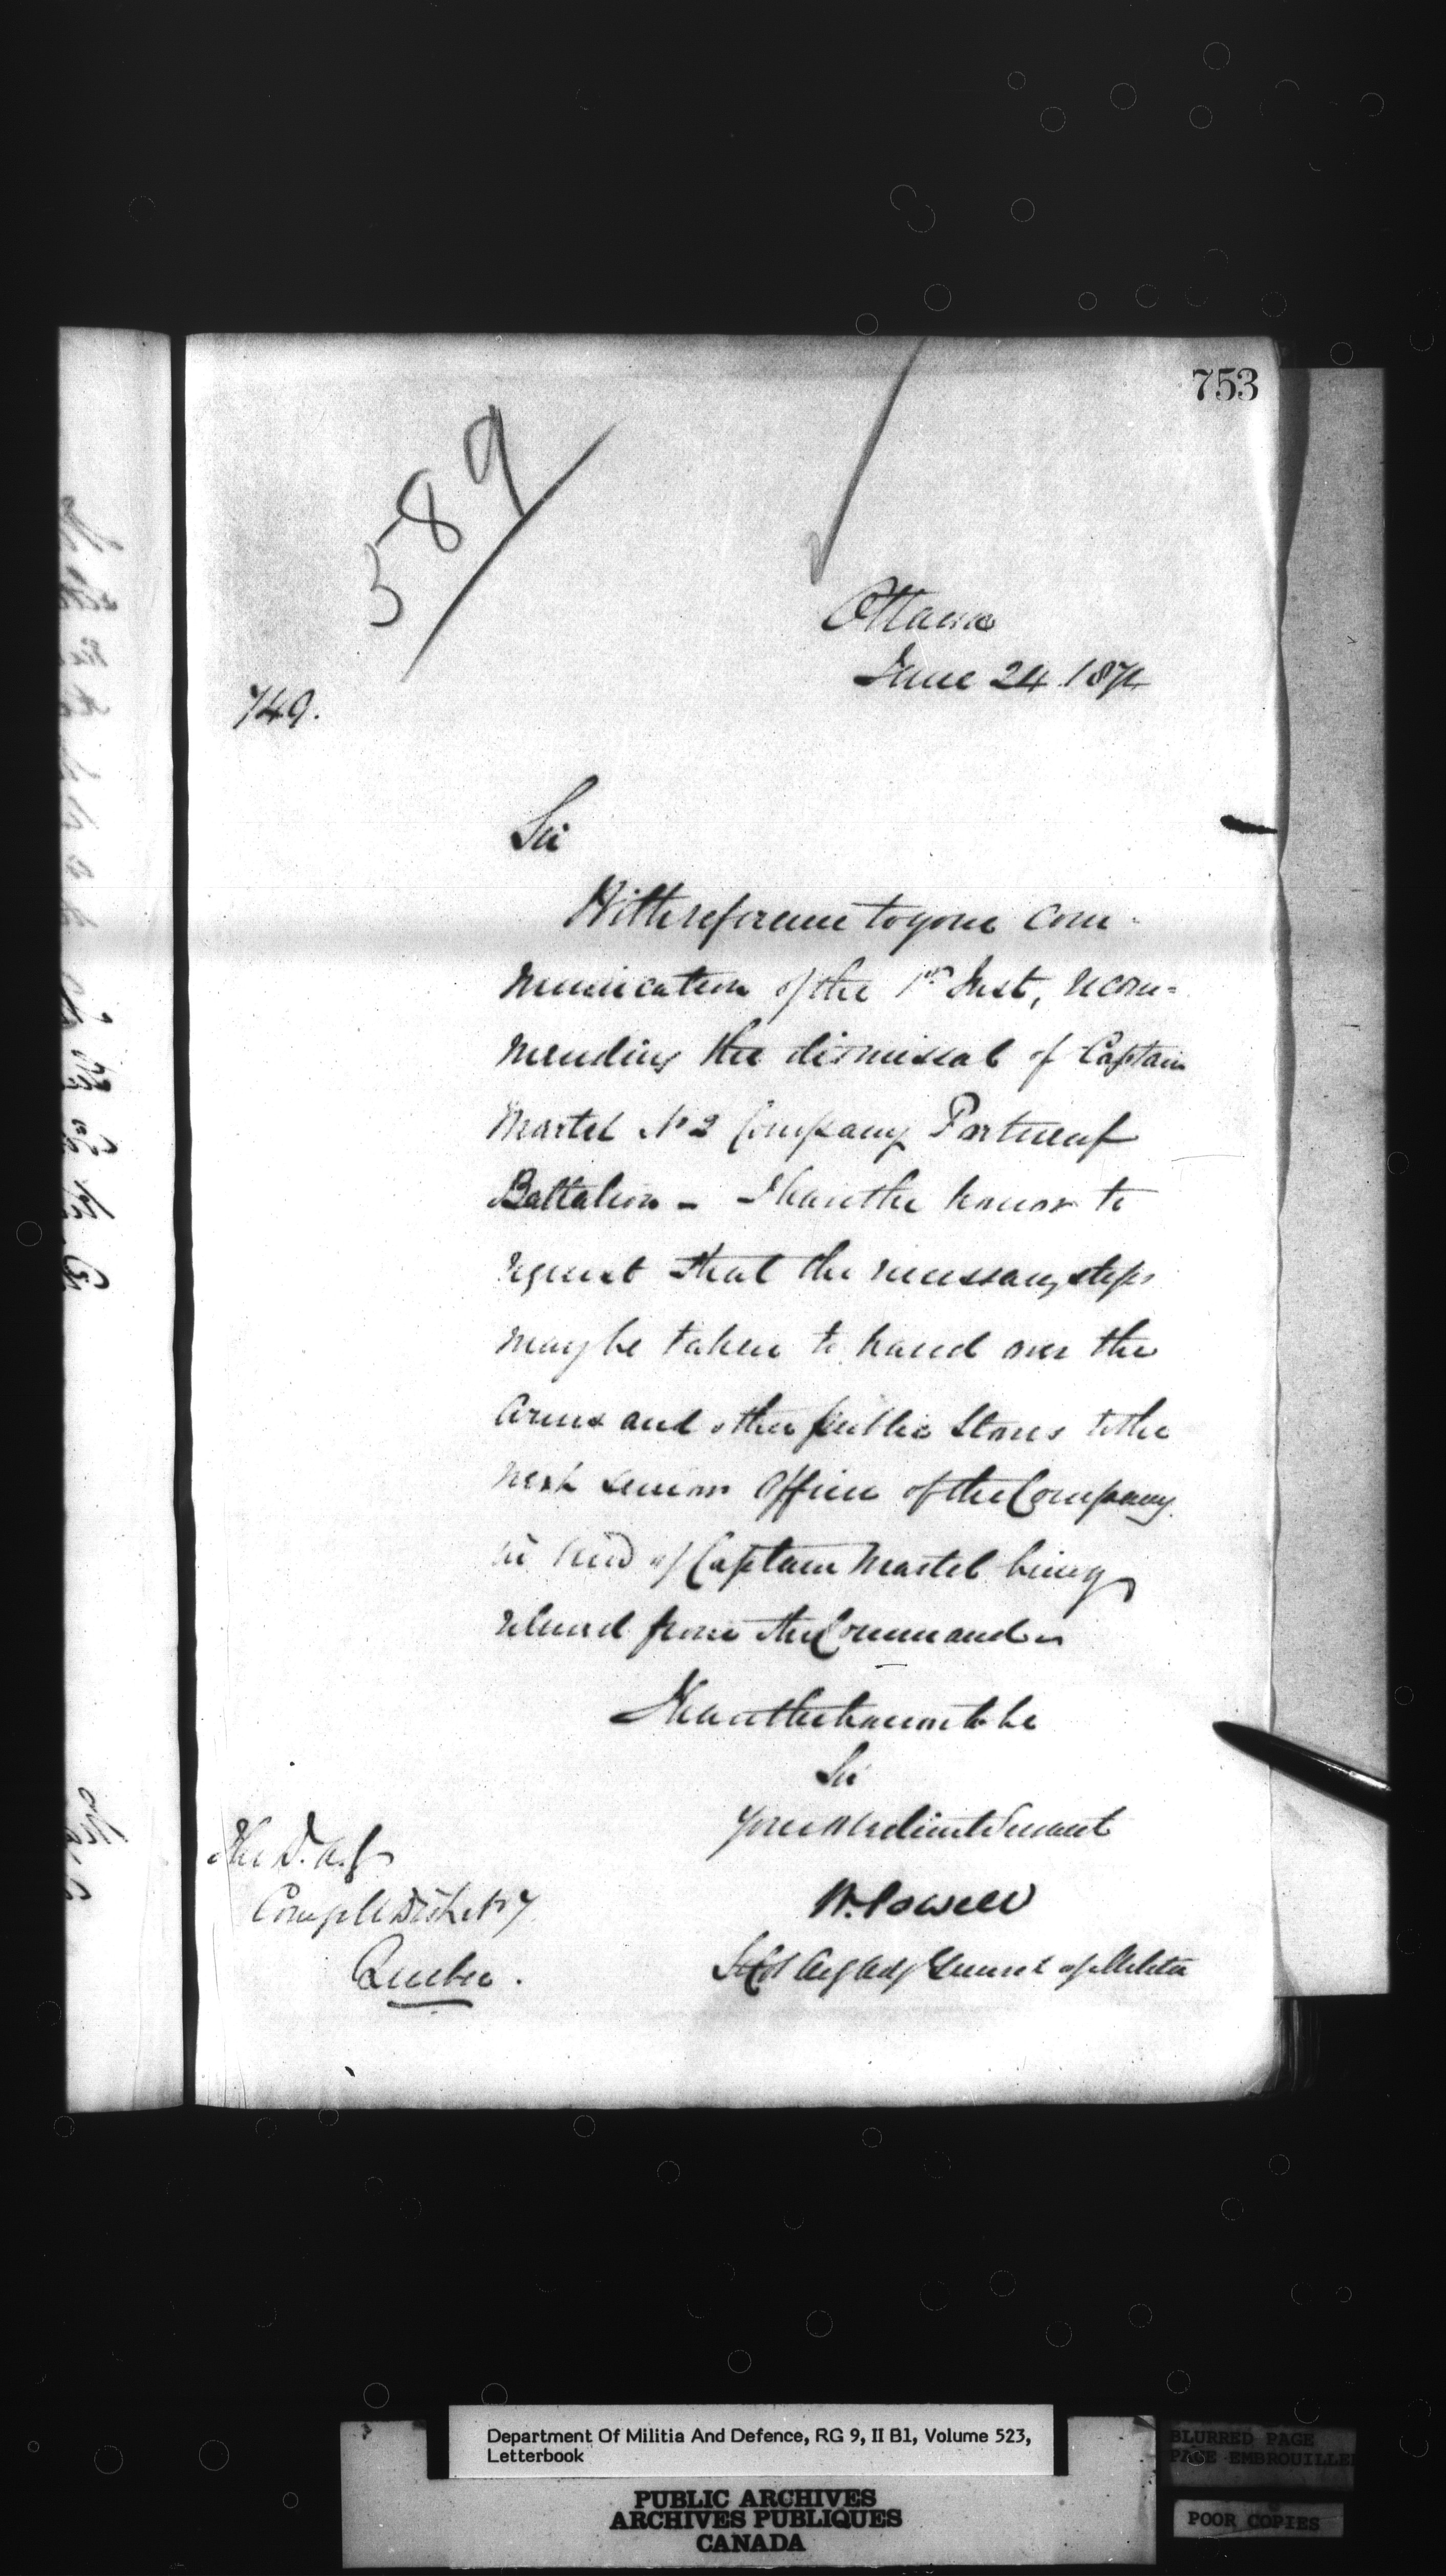 753
589
Ottawa
June 24 1874
749.
Sir
With reference to your com-
munication of the 1st Inst, recom=
mending the dismissal of Captain
Martel No 2 Company Portneuf
Battalion - I have the honor to
request that the necessary steps
may be taken to hand over the
Arms and other public Stores to the
next senior Officer of the Company
in lieu of Captain Martel being
relieved from the Command
I have the honor to be
Sir
Your obedient Servant
The D.A.G.
W. Powell
Comg Mil Dist No 7
Lt Col Actg Adj General of Militia
Quebec.
Department Of Militia And Defence, RG 9, II B1, Volume 523,
Letterbook
BLURRED PAGE
PAGE EMBROUILLEE
PUBLIC ARCHIVES
ARCHIVES PUBLIQUES
CANADA
POOR COPIES